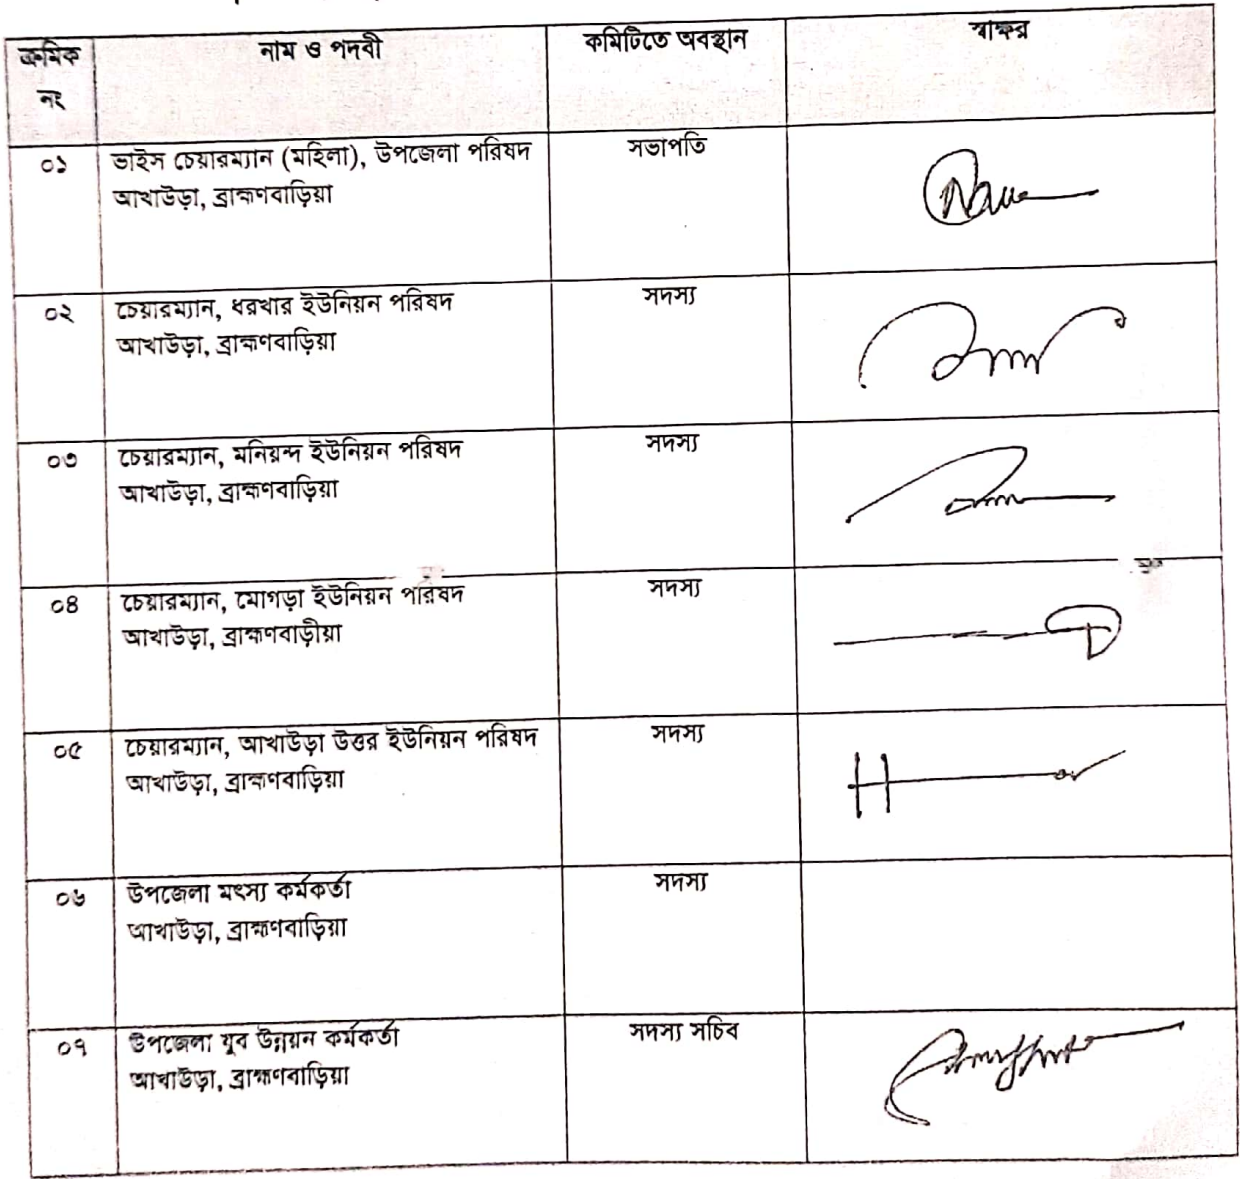 ক্রমিক নং | নাম ও পদবী | কমিটিতে অবস্থান | স্বাক্ষর
০১ | ভাইস চেয়ারম্যান (মহিলা), উপজেলা পরিষদ
আখাউড়া, ব্রাহ্মণবাড়িয়া | সভাপতি
০২ | চেয়ারম্যান, ধরখার ইউনিয়ন পরিষদ
আখাউড়া, ব্রাহ্মণবাড়িয়া | সদস্য
০৩ | চেয়ারম্যান, মনিয়ন্দ ইউনিয়ন পরিষদ
আখাউড়া, ব্রাহ্মণবাড়িয়া | সদস্য
০৪ | চেয়ারম্যান, মোগড়া ইউনিয়ন পরিষদ
আখাউড়া, ব্রাহ্মণবাড়ীয়া | সদস্য
০৫ | চেয়ারম্যান, আখাউড়া উত্তর ইউনিয়ন পরিষদ
আখাউড়া, ব্রাহ্মণবাড়িয়া | সদস্য
০৬ | উপজেলা মৎস্য কর্মকর্তা
আখাউড়া, ব্রাহ্মণবাড়িয়া | সদস্য
০৭ | উপজেলা যুব উন্নয়ন কর্মকর্তা
আখাউড়া, ব্রাহ্মণবাড়িয়া | সদস্য সচিব